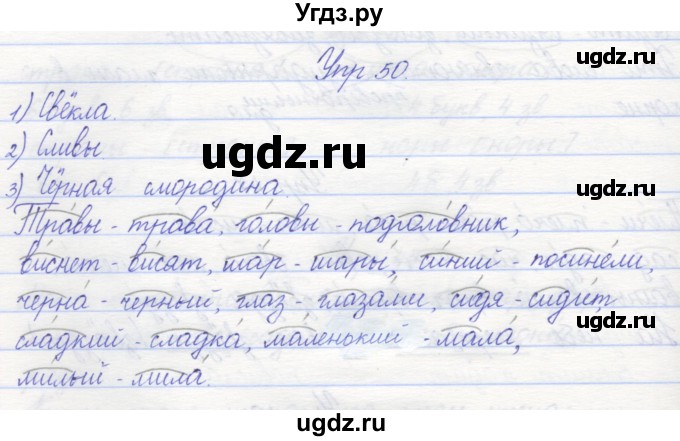 Угдз.ру
ugdz.ru
Упр 50.
1) Свёкла.
2) Сливы.
ugdz.ru
ugdz.ru
3) Чёрная смородина.
Травы - трава, головы - подголовник,
виснет - висят, шар - шары, синий - посинели,
черна - черный, глаз - глазами, сидя - сидит
ugdz.ru
сладкий - сладка, маленький - мала,
милый - мила.
ugdz.ru